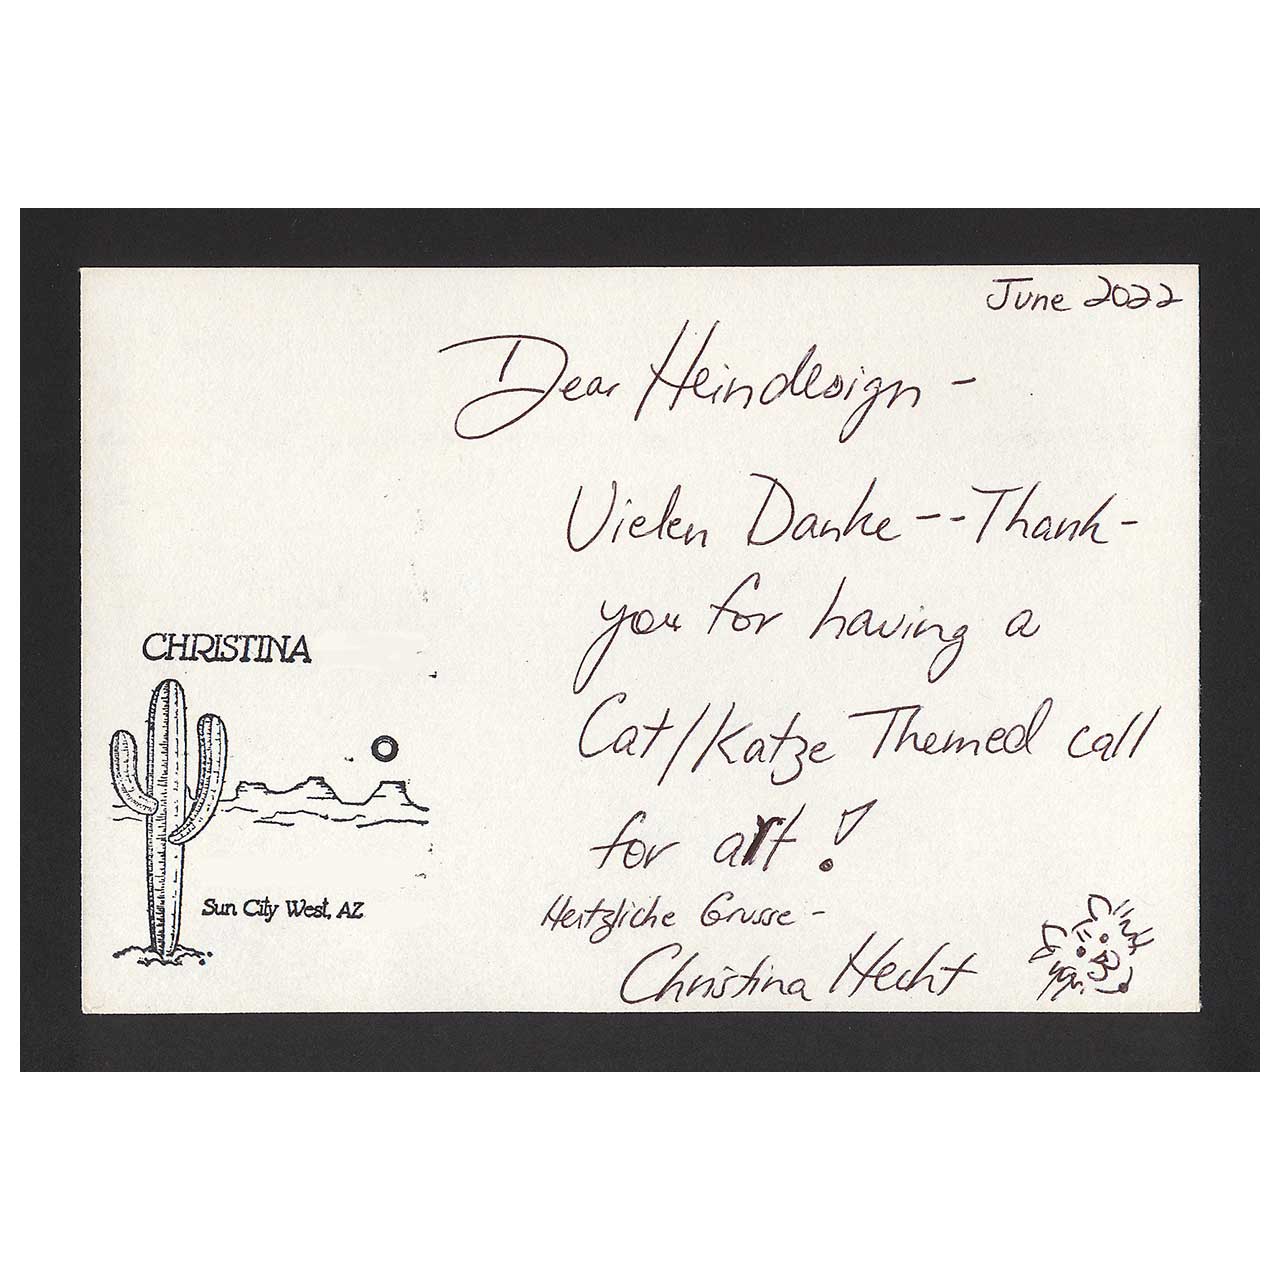 June 2022
Dear Heindesign -
Vielen Danke -- Thank-
you for having a
Cat/Katze Themed call
for art!
Hertzliche Grusse -
Christina Hecht
CHRISTINA
Sun City West, AZ